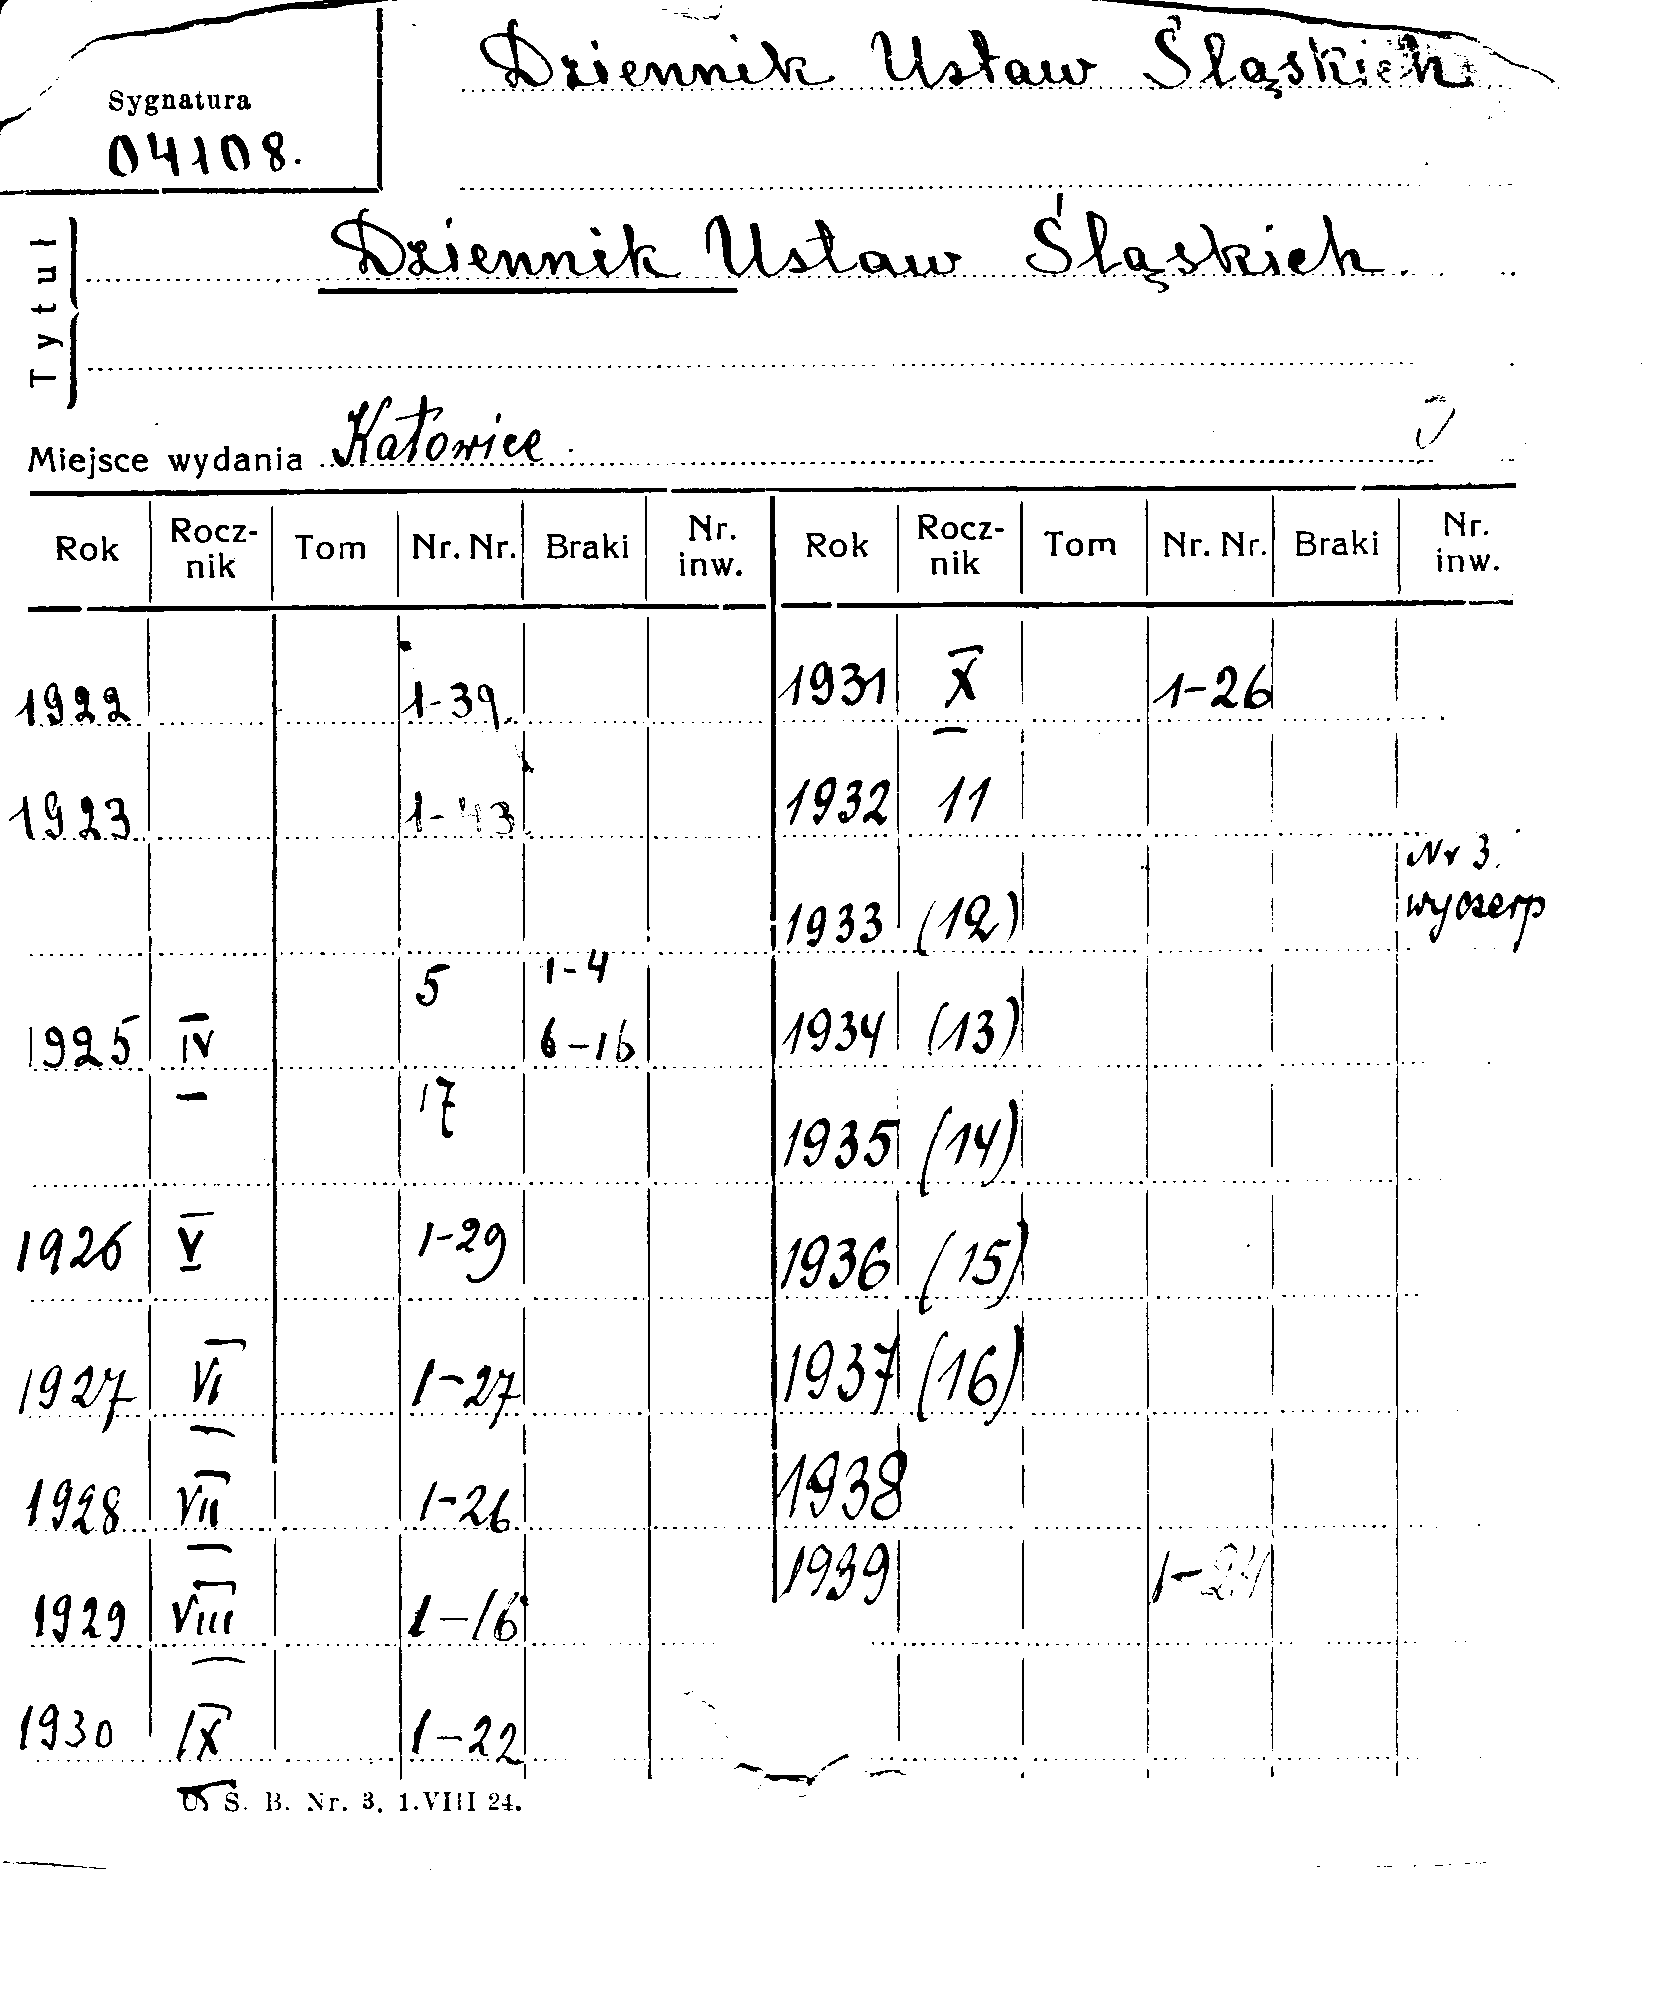 Dziennik Ustaw Śląskich
Sygnatura
04108.
Tytuł
Dziennik Ustaw Śląskich.
Miejsce wydania Katowice
Rok Rocz-nik Tom Nr. Nr. Braki Nr. inw. Rok Rocz-nik Tom Nr. Nr. Braki Nr. inw.
1922 1-39. 1931 X 1-26
1923 1-43 1932 11
1933 (12) Nr 3. wyczerp
5 1-4
1925 IV 6-16 1934 (13)
17 1935 (14)
1926 V 1-29 1936 (15)
1927 VI 1-27 1937 (16)
1928 VII 1-26 1938
1929 VIII 1-16 1939 1-24
1930 IX 1-22
U. S. B. Nr. 3. 1.VIII 24.